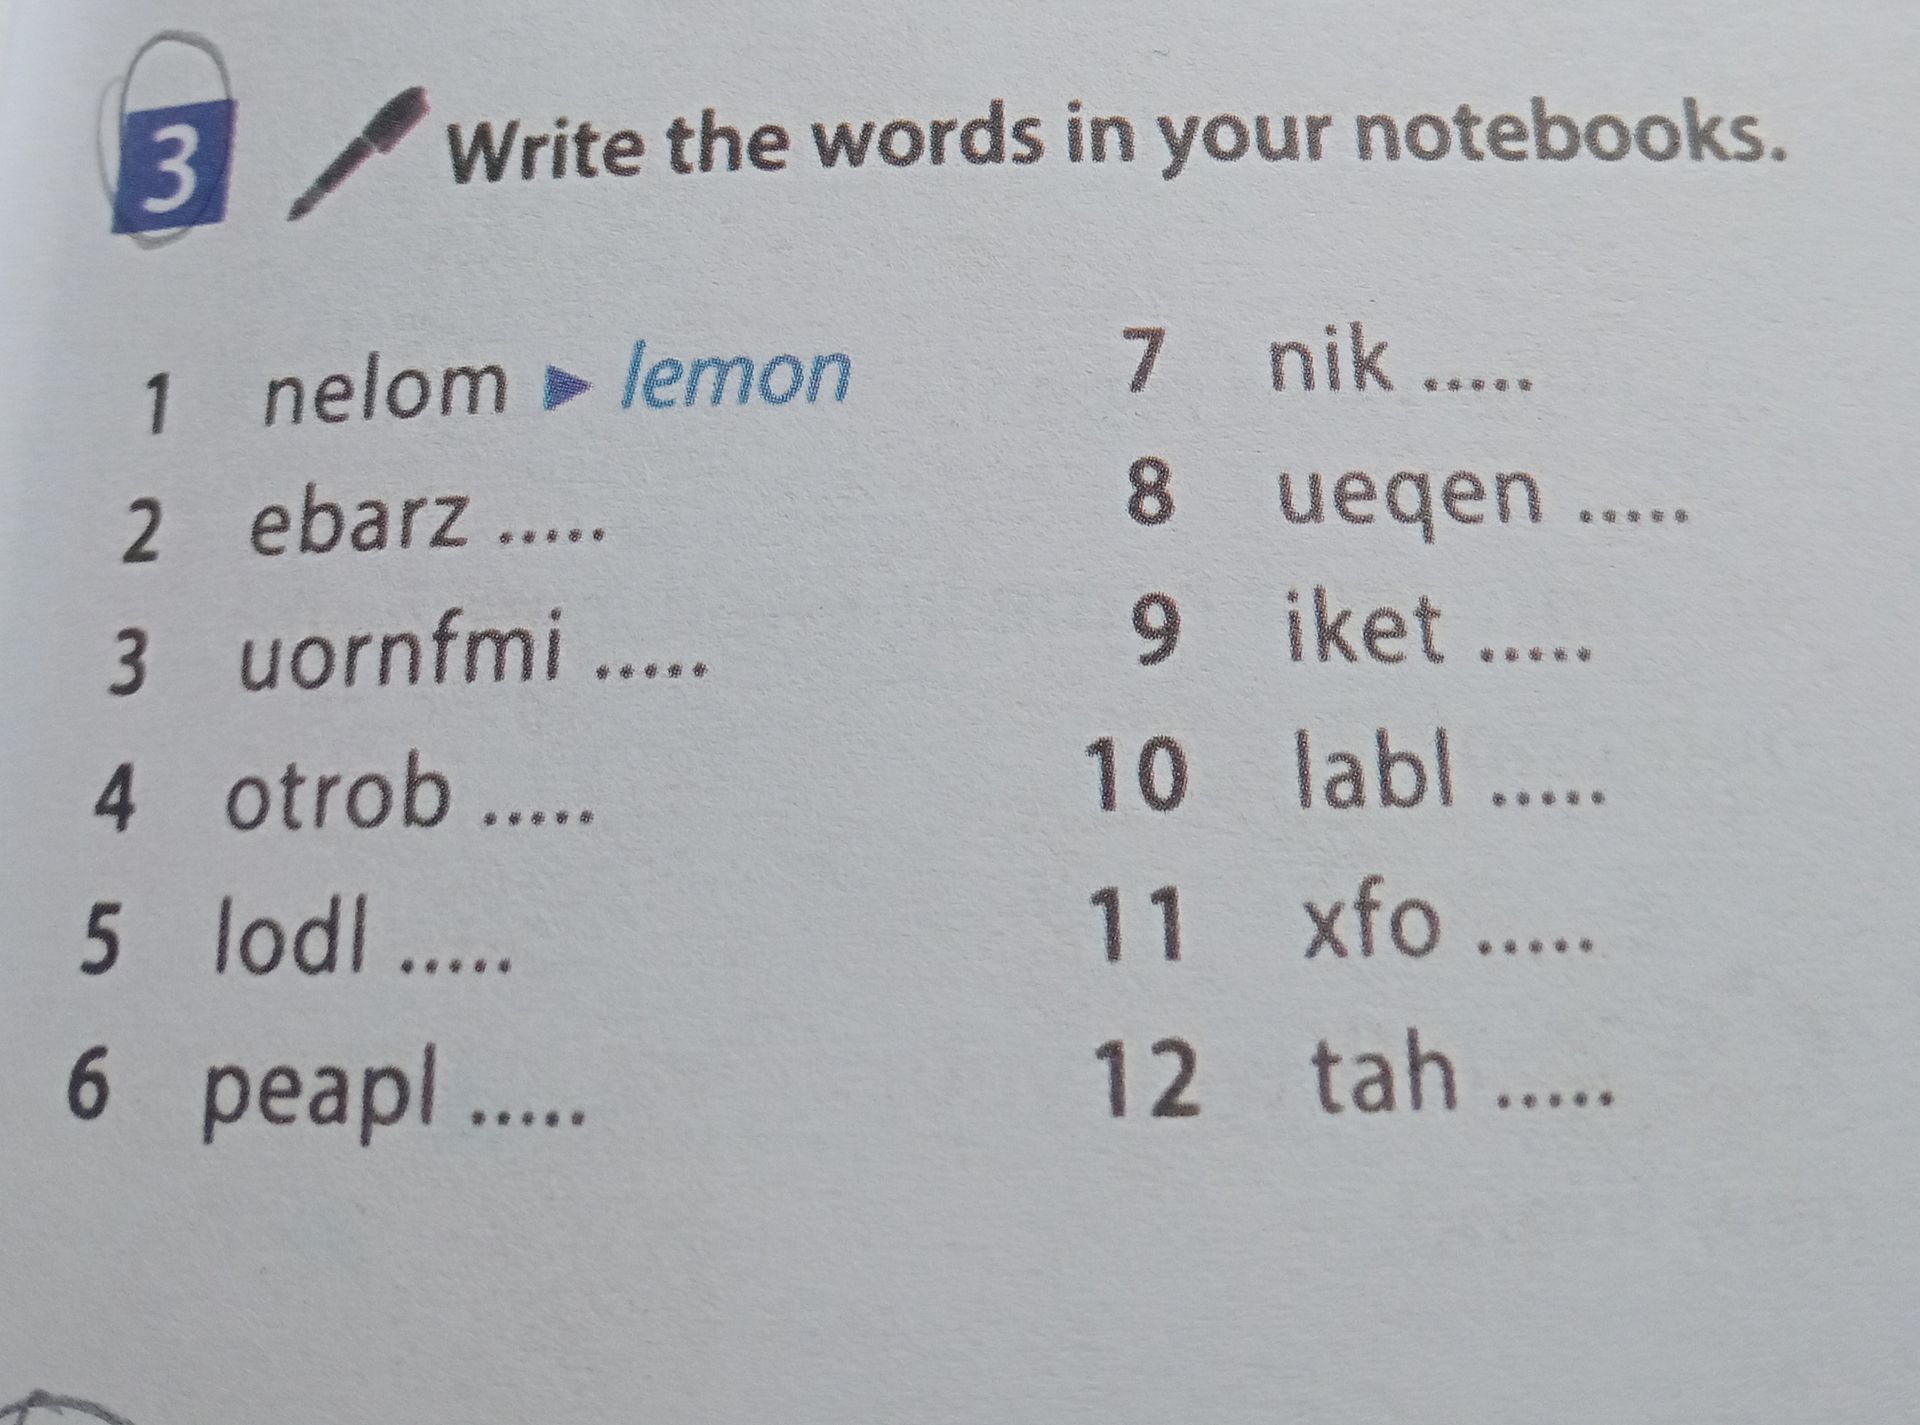 3 Write the words in your notebooks.
1 nelom ▶ lemon
2 ebarz .....
3 uornfmi .....
4 otrob .....
5 lodl .....
6 peapl .....
7 nik .....
8 ueqen .....
9 iket .....
10 labl .....
11 xfo .....
12 tah .....